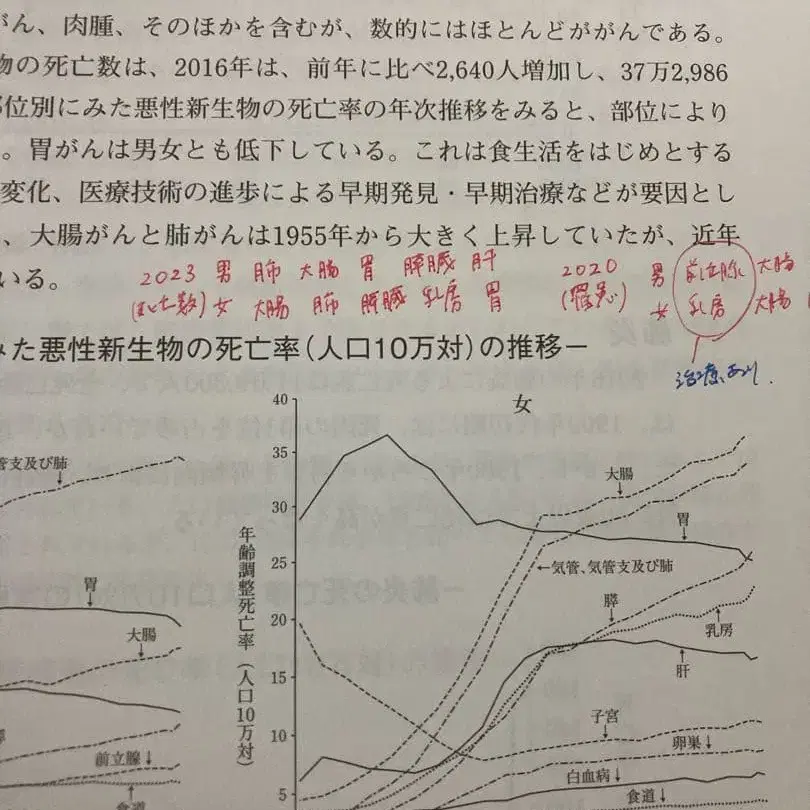 がん、肉腫、そのほかを含むが、数的にはほとんどががんである。
物の死亡数は、2016年は、前年に比べ2,640人増加し、37万2,986
部位別にみた悪性新生物の死亡率の年次推移をみると、部位により
。胃がんは男女とも低下している。これは食生活をはじめとする
変化、医療技術の進歩による早期発見・早期治療などが要因とし
、大腸がんと肺がんは1955年から大きく上昇していたが、近年
いる。
2023 男 肺 大腸 胃 膵臓 肝 2020 男 前立腺 大腸
(死亡数) 女 大腸 肺 膵臓 乳房 胃 (罹患) 女 乳房 大腸
みた悪性新生物の死亡率(人口10万対)の推移－
治療あり.
女
40
35
30
25
20
15
10
5
年齢調整死亡率(人口10万対)
管支及び肺
胃
大腸
前立腺
食道
大腸
胃
←気管、気管支及び肺
膵
乳房
肝
子宮
卵巣
白血病
食道